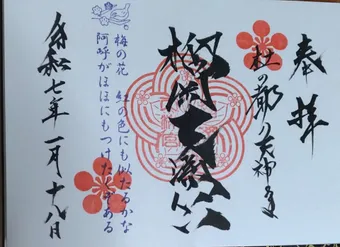 奉拝
杜の都の天神さま
榴岡天満宮
梅の花 紅の色にも似たるかな
阿呼がほほにもつけたくぞある
令和七年一月十八日